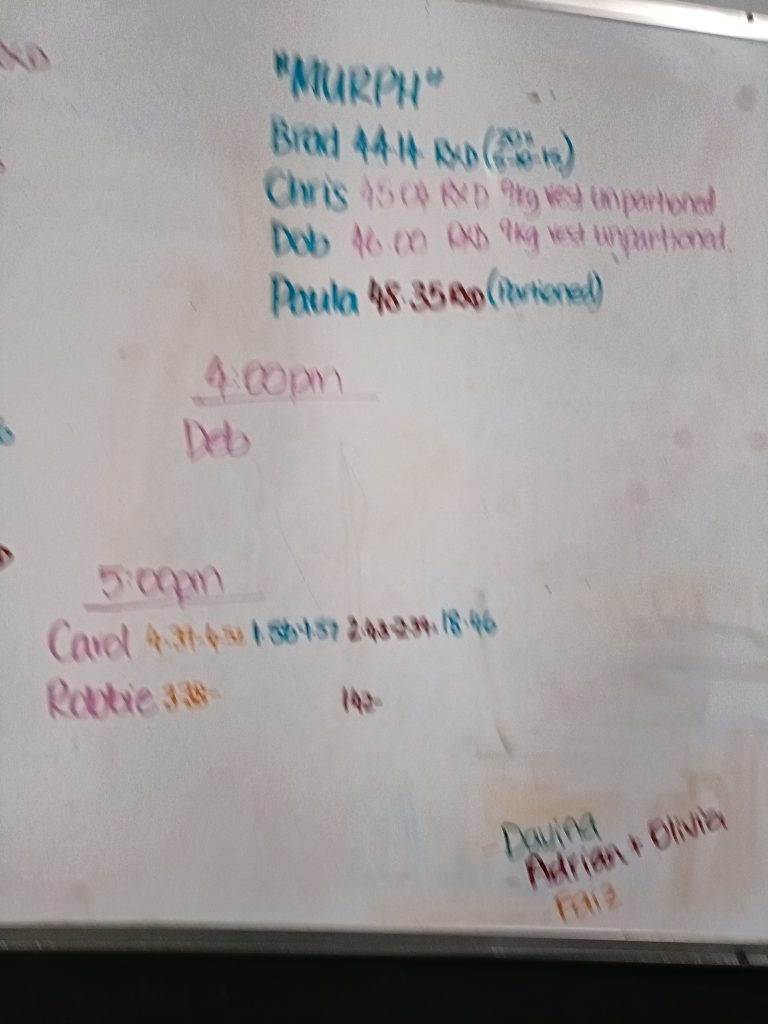 RXD
"MURPH"
Brad 44.14 RXD (20x 5-10-15)
Chris 45.04 RXD 9kg vest unpartioned
Deb 46.00 RXD 9kg vest unpartioned
Paula 48.35 RXD (Partioned)
4:00pm
Deb
5:00pm
Carol 1.56 1.57 2.43 2.39 18.46
Robbie 3.38
Davina
Adrian + Olivia
Faiz